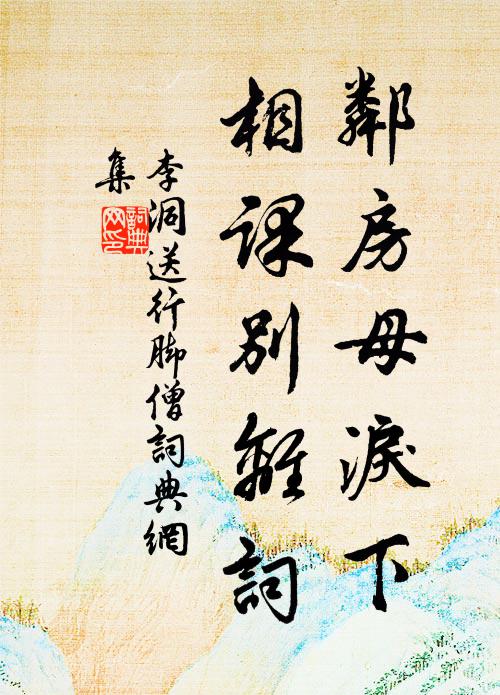 鄰房母淚下
相課別離詞
李洞送行脚僧詞典網
集
詞典
网印